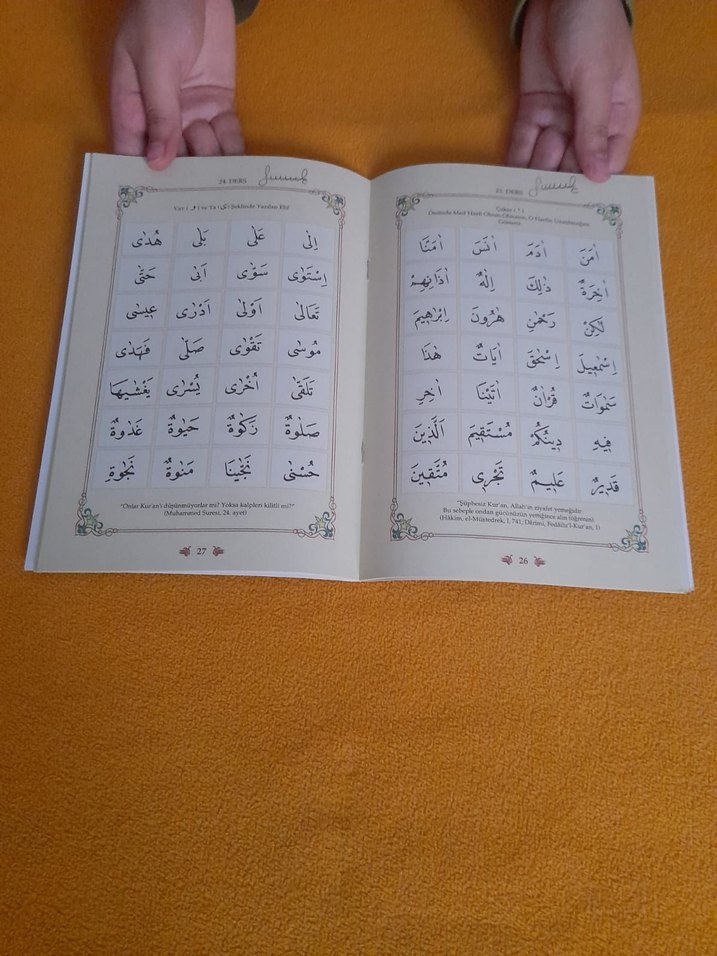 23. DERS
Çeker ( ٰ )
Önünde Med Harfi Olsun-Olmasın, O Harfin Uzatılacağını
Gösterir.
اٰمَنَ اٰدَمَ اٰنَسَ اٰمَنَّا
اٰخِرَةٌ ذٰلِكَ اِلٰهٌ اٰذَانِهِمْ
لٰكِنْ رَحْمٰنِ هٰرُونَ اِبْرٰهِيمَ
اِسْمٰعِيلَ اِسْحٰقَ اٰيَاتٌ هٰذَا
سَمٰوَاتٌ قُرْاٰنٌ اٰتَيْنَا اٰخِرِ
فِيهِ دِينُكُمْ مُسْتَقِيمَ اَلَّذِينَ
قَدِيرٌ عَلِيمٌ تَجْرِى مُتَّقِينَ
"Şüphesiz Kur'an, Allah'ın ziyafet yemeğidir.
Bu sebeple ondan gücünüzün yettiğince alın (öğrenin).
(Hâkim, el-Müstedrek, I, 741; Dârimî, Fedâilu'l-Kur'an, 1)
26
24. DERS
Vav ( و ) ve Ya ( ى ) Şeklinde Yazılan Elif
اِلٰى عَلٰى بَلٰى هُدٰى
اِسْتَوٰى سَوّٰى اَبٰى حَتّٰى
تَعَالٰى اَوْلٰى اَدْرٰى عِيسٰى
مُوسٰى تَقْوٰى صَلّٰى فَهَدٰى
تَلَقّٰى اُخْرٰى يُسْرٰى يَغْشٰيهَا
صَلٰوةٌ زَكٰوةٌ حَيٰوةٌ غَدٰوةٌ
حُسْنٰى نَجّٰينَا مَنٰوةٌ نَجٰوةِ
"Onlar Kur'an'ı düşünmüyorlar mı? Yoksa kalpleri kilitli mi?"
(Muhammed Suresi, 24. ayet)
27